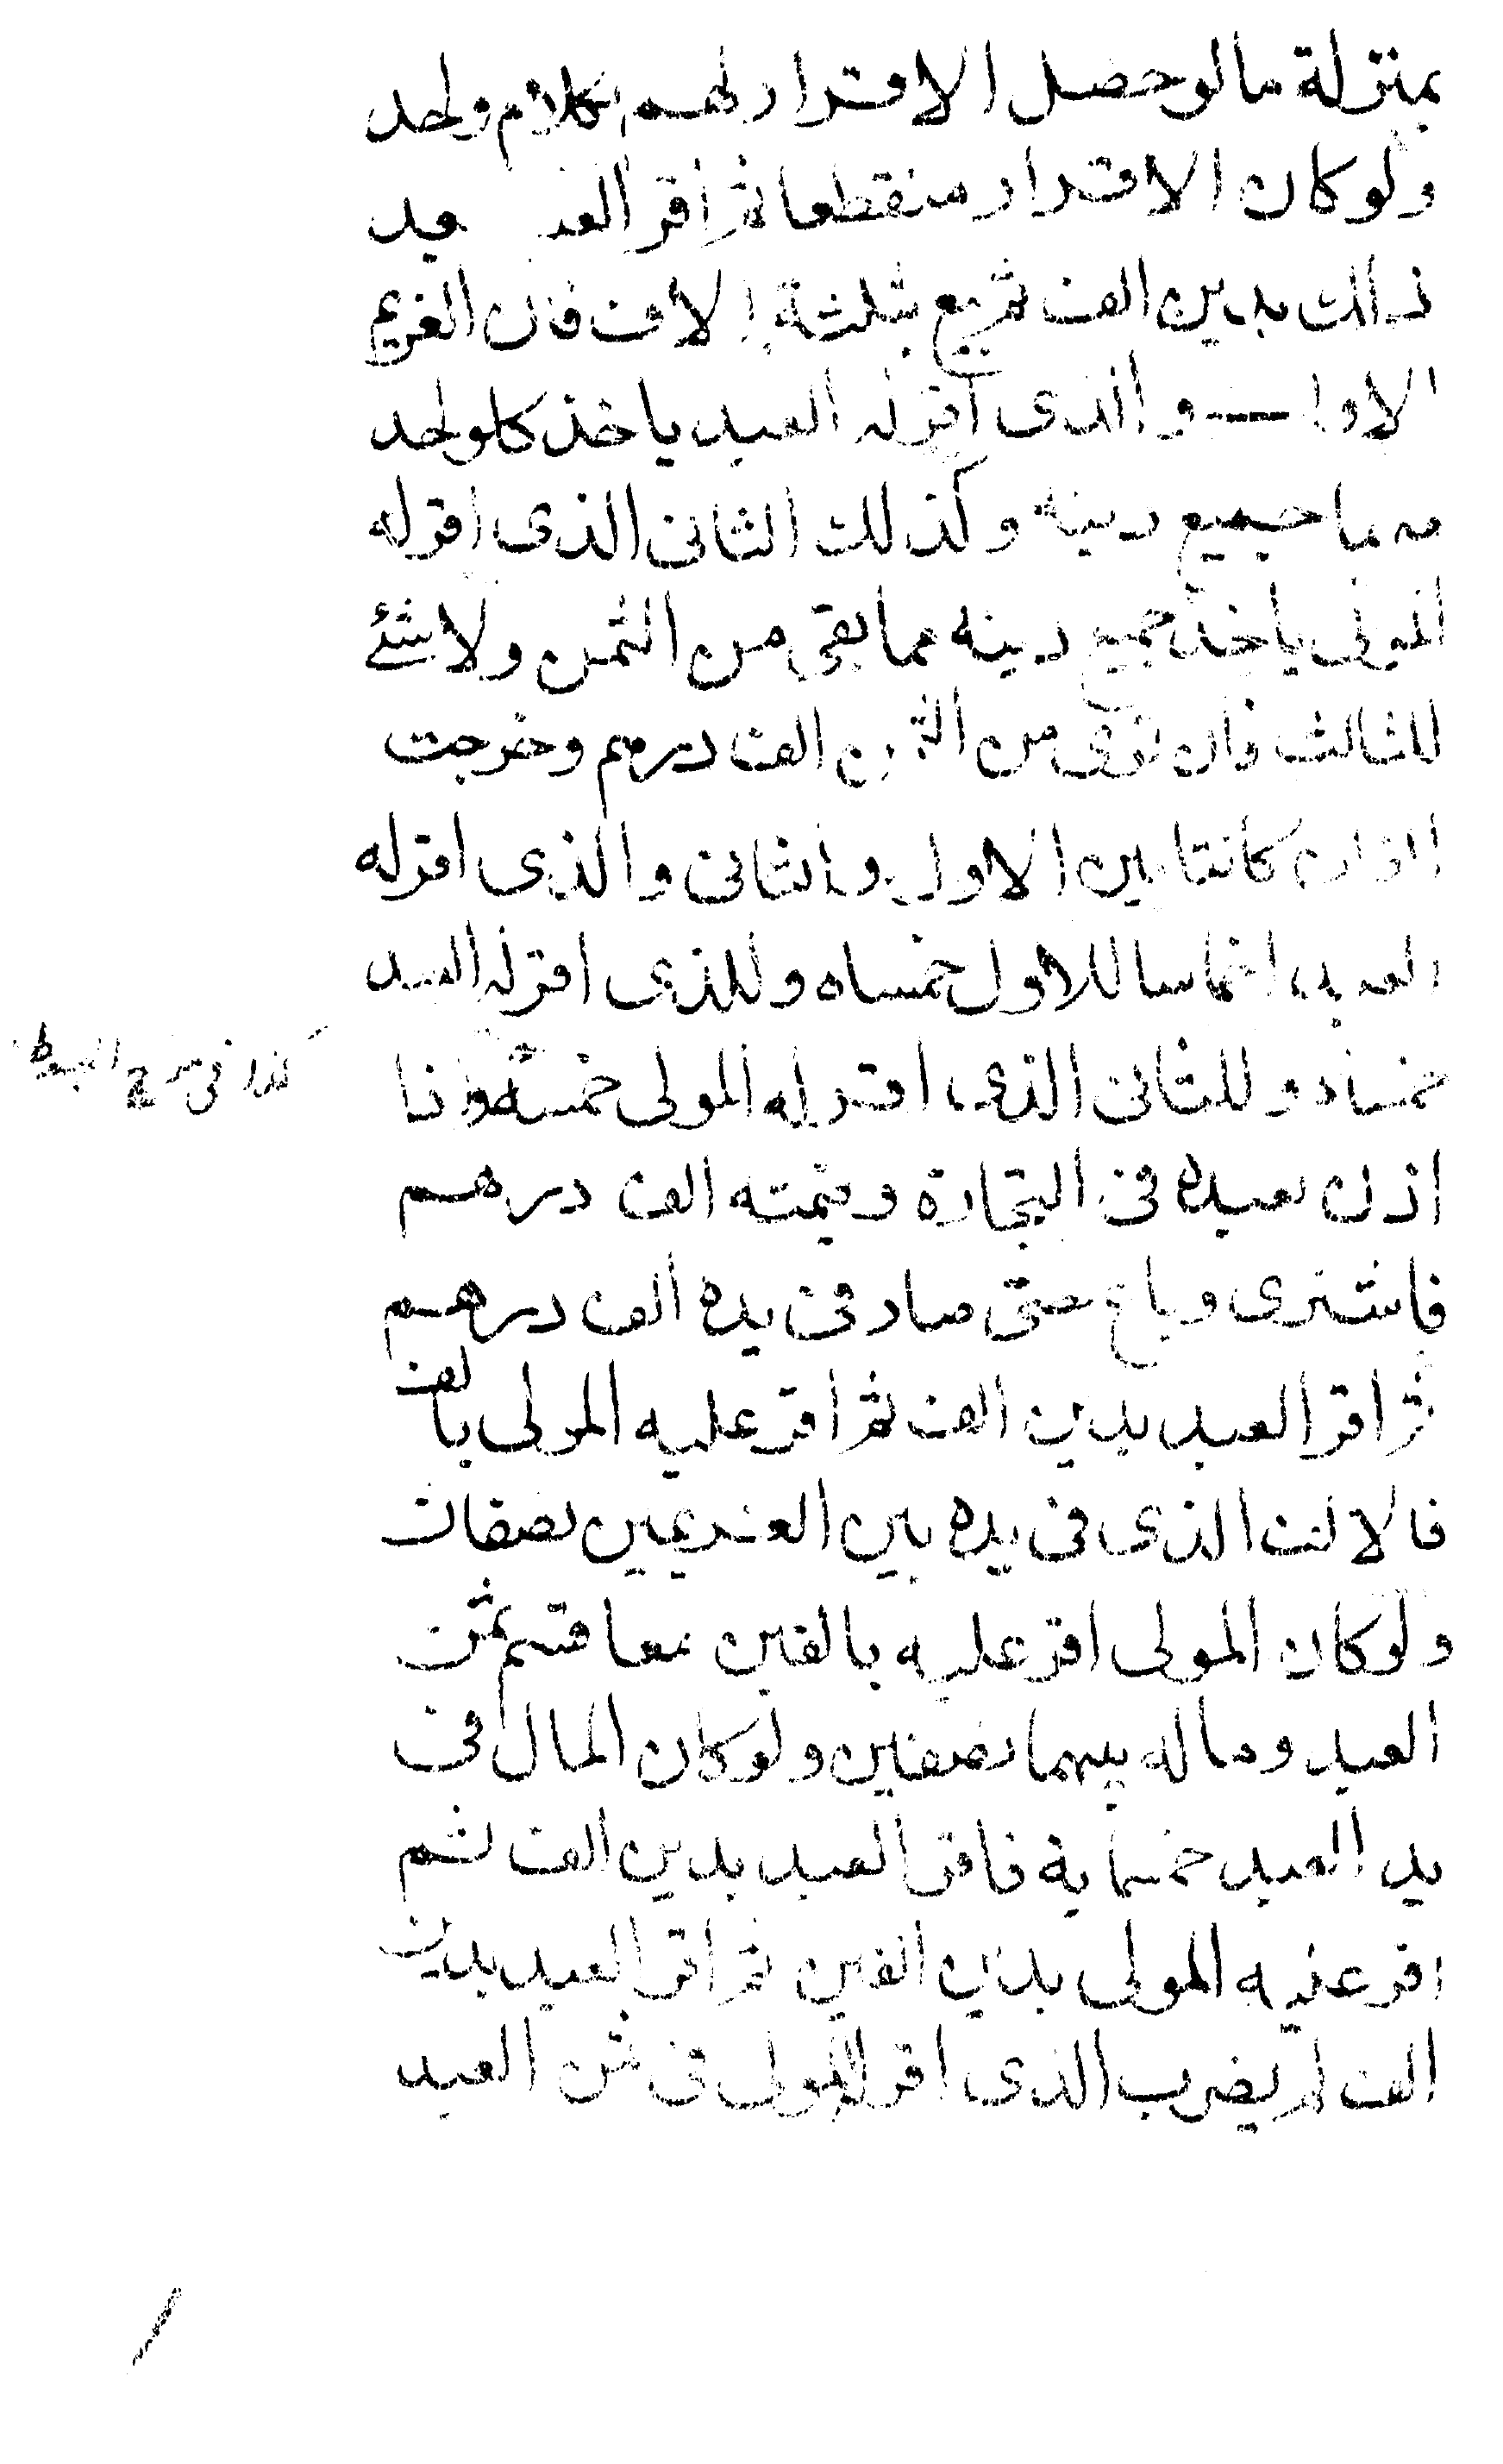 بمنزلة ما لو حصل الاقرار لهم بكلام واحد
ولو كان الاقرار منقطعا ثم اقر العبد بعد
ذلك بدين الف ثم بيع بثلثة الاف فان الغريم
الاول والذى اقر له العبد ياخذ كل واحد
منهما جميع دينه وكذلك الثانى الذى اقر له
المولى ياخذ جميع دينه مما بقى من الثمن ولا شئ
للثالث فان توى من الثمن الف درهم وخرجت
الفان كانتا بين الاول والثانى والذى اقر له
العبد اخماسا للاول خمساه وللذى اقر له العبد
خمساه وللثانى الذى اقر له المولى خمسه واذا
كذا فى
اذن لعبده فى التجارة وقيمته الف درهم
فاشترى وباع حتى صار فى يده الف درهم
ثم اقر العبد بدين الف ثم اقر عليه المولى بالف
فالالف الذى فى يده بين الغريمين نصفان
ولو كان المولى اقر عليه بالفين معا قسم ثمن
العبد وماله بينهما نصفين ولو كان المال فى
يد العبد خمسماية فاقر العبد بدين الف ثم
اقر عليه المولى بدين الفين ثم اقر العبد بدين
الف لم يضرب الذى اقر له المولى فى ثمن العبد